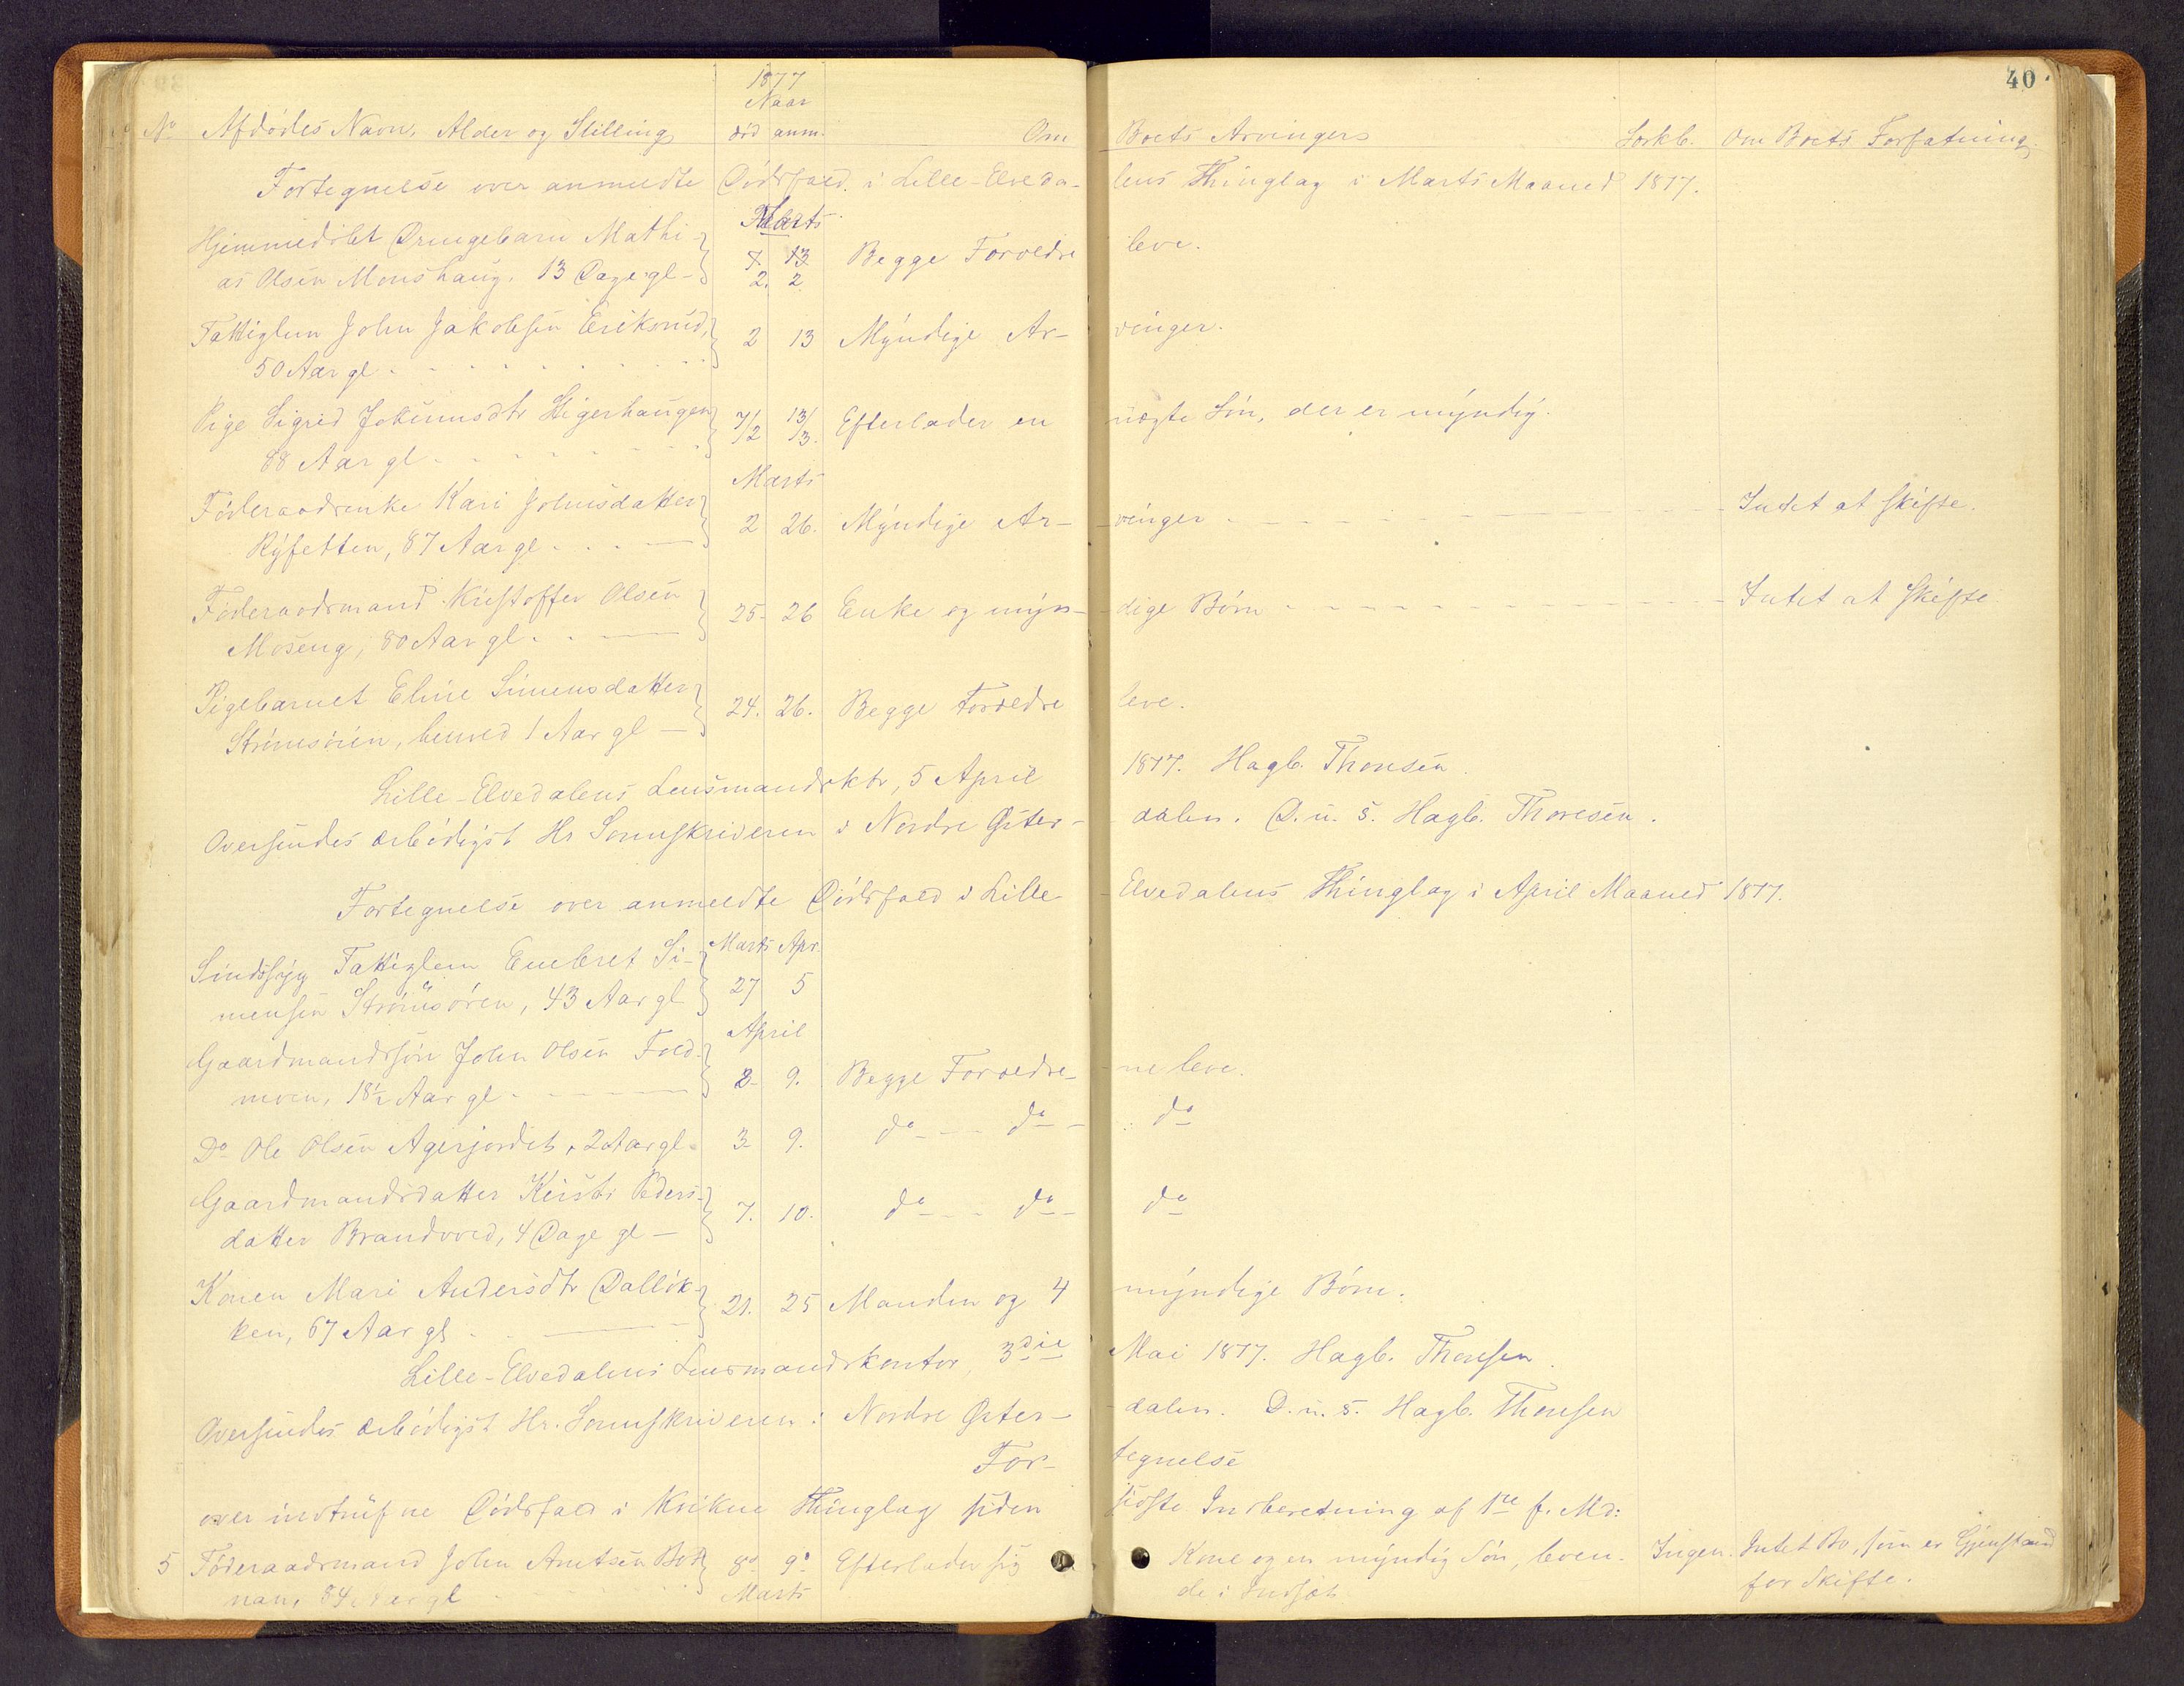 40.
1877
Naar
No Afdødes Navn, Alder og Stilling død anm. Om Boets Arvinger Forkb. Om Boets Forfatning
Fortegnelse over anmeldte Dødsfald i Lille-Elveda- lens Thinglag i Marts Maaned 1877.
Marts
Hjemmedøbt Drengebarn Mathi- 7 13 Begge Forældre leve.
as Olsen Monshaug, 13 Dage gl - 2. 2.
Fattiglem John Jakobsen Eriksrud, 2 13 Myndige Ar- vinger.
50 Aar gl
Pige Sigrid Johannsdtr Stigerhaugen 7/2 13/3. Efterlader en uægte Søn, der er myndig.
88 Aar gl
Marts
Føderaadsenke Kari Johnsdatter 2 26. Myndige Ar- vinger Intet at skifte.
Ryfetten, 87 Aar gl
Føderaadsmand Kristoffer Olsen 25- 26 Enke og myn- dige Børn Intet at skifte
Moseng, 80 Aar gl.
Pigebarnet Eline Simensdatter 24. 26. Begge Forældre leve.
Strømsøien, henved 1 Aar gl -
Lille-Elvedalens Lensmandsktr, 5 April 1877. Hagb. Thoresen.
Oversendes ærbødigst Hr Sorenskriveren i Nordre Øster- dalen. D. u. s. Hagb. Thoresen.
Fortegnelse over anmeldte Dødsfald i Lille- Elvedalens Thinglag i April Maaned 1877.
Marts Apr.
Sindssyg Fattiglem Enebret Si-
mensen Strømsøren, 43 Aar gl 27 5
April
Gaardmandssøn John Olsen Fold- 2- 9. Begge Forældre- ne leve.
moen, 18½ Aar gl
Do Ole Olsen Agerjordet, 2 Aar gl. 3- 9. do do do
Gaardmandsdatter Kirsti Peders- 7. 10. do do do
datter Brandvold, 4 Dage gl -
Konen Mari Andersdtr Dalløk- 21. 25 Manden og 4 myndige Børn.
ken, 67 Aar gl
Lille-Elvedalens Lensmandskontor, 3die Mai 1877. Hagb. Thoresen.
Oversendes ærbødigst Hr. Sorenskriveren i Nordre Øster- dalen. D. u. s. Hagb. Thoresen
For- tegnelse
over indtrufne Dødsfald i Kvikne Thinglag siden sidste Indberetning af 1ne f. Md:
5 Føderaadsmand John Arntsen Bod 8de 9de Efterlader sig Kone og en myndig Søn, leven- Ingen. Intet Bo, som er Gjenstand
nan, 84 Aar gl Marts de i Indset for Skifte.